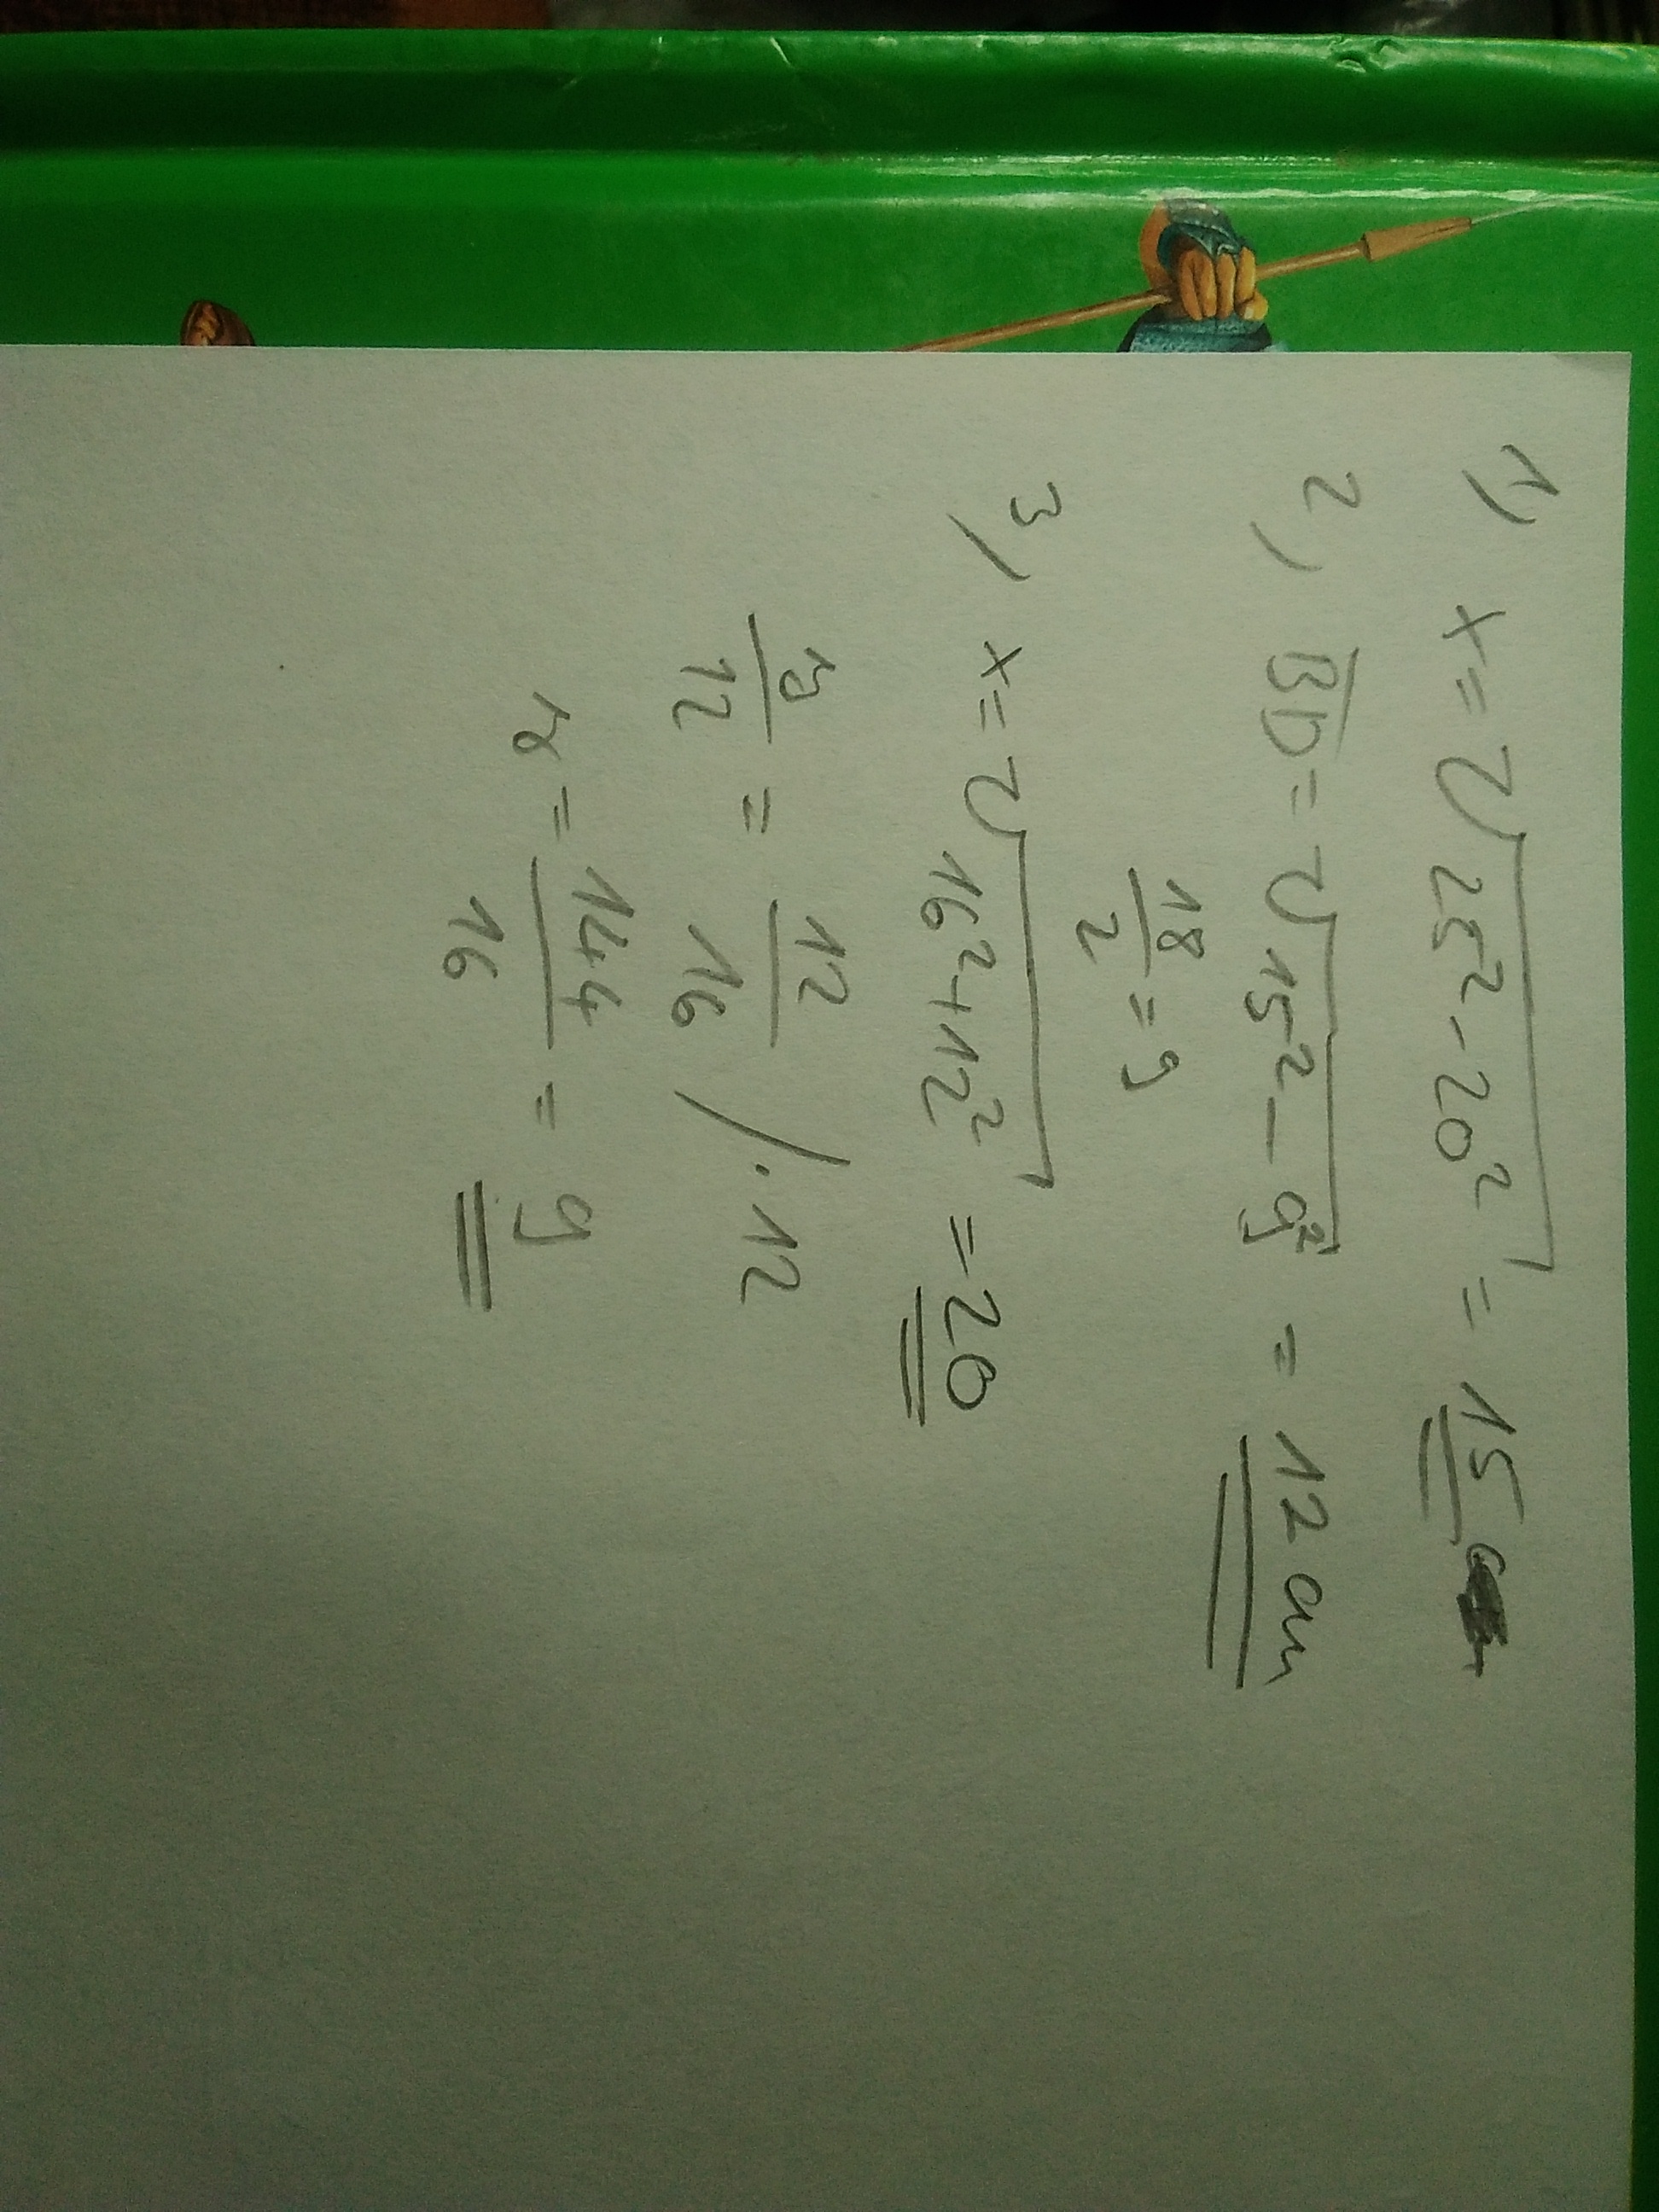 1) x = √25² - 20² = 15
2) BD = √15² - 9² = 12 cm
18/2 = 9
3) x = √16² + 12² = 20
15/12 = 12/16 /·12
r = 144/16 = 9